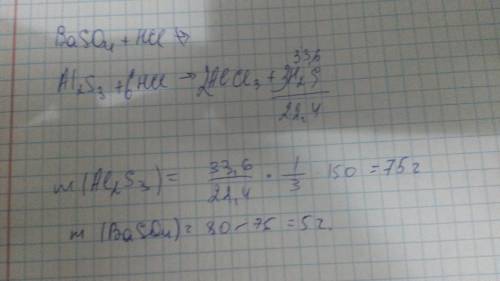 BaSO₄ + HCl ↛
33,6
Al₂S₃ + 6HCl → 2AlCl₃ + 3H₂S
22,4
m (Al₂S₃) = 33,6 / 22,4 · 1/3 150 = 75 г
m (BaSO₄) = 80 - 75 = 5 г.